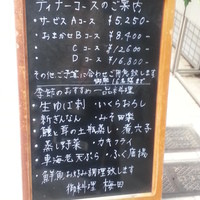 ディナーコースのご案内
・サービスAコース ¥5,250-
・おまかせBコース ¥8,400-
・ C コース ¥12,600-
・ D コース ¥16,300-
その他、ご予算に合わせご用意致します
季節のおすすめ一品料理
・生ゆば刺 ・いくらおろし
・新ぎんなん ・みそ田楽
・鱧と茸の土瓶蒸し ・煮穴子
・蒸し野菜 ・カキフライ
・車海老天ぷら ・ふぐ唐揚
・鮮魚お好み調理致します
御料理 梅田